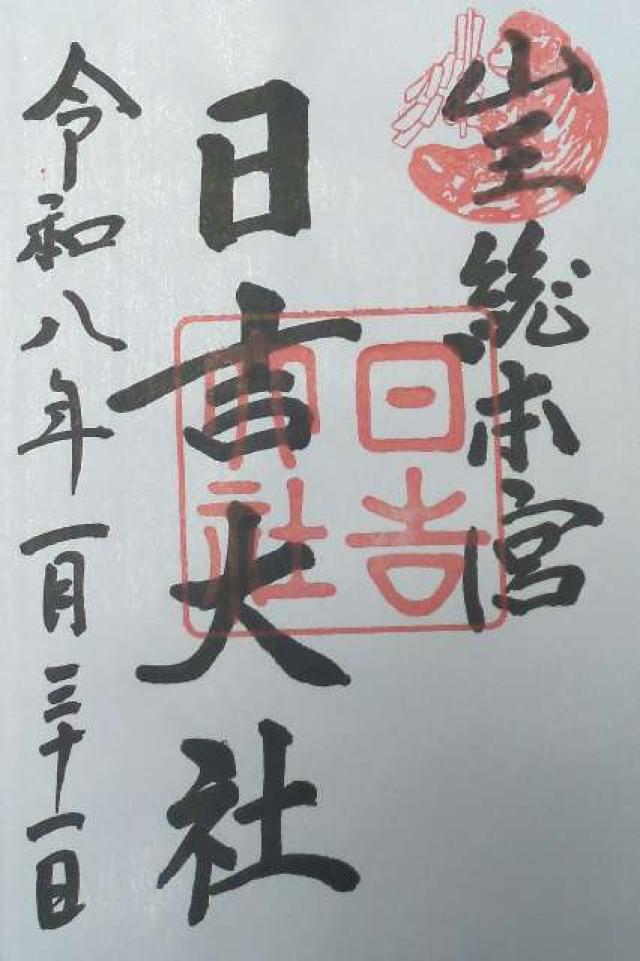 山王
総本宮
日吉大社
日吉大社
令和八年一月三十一日